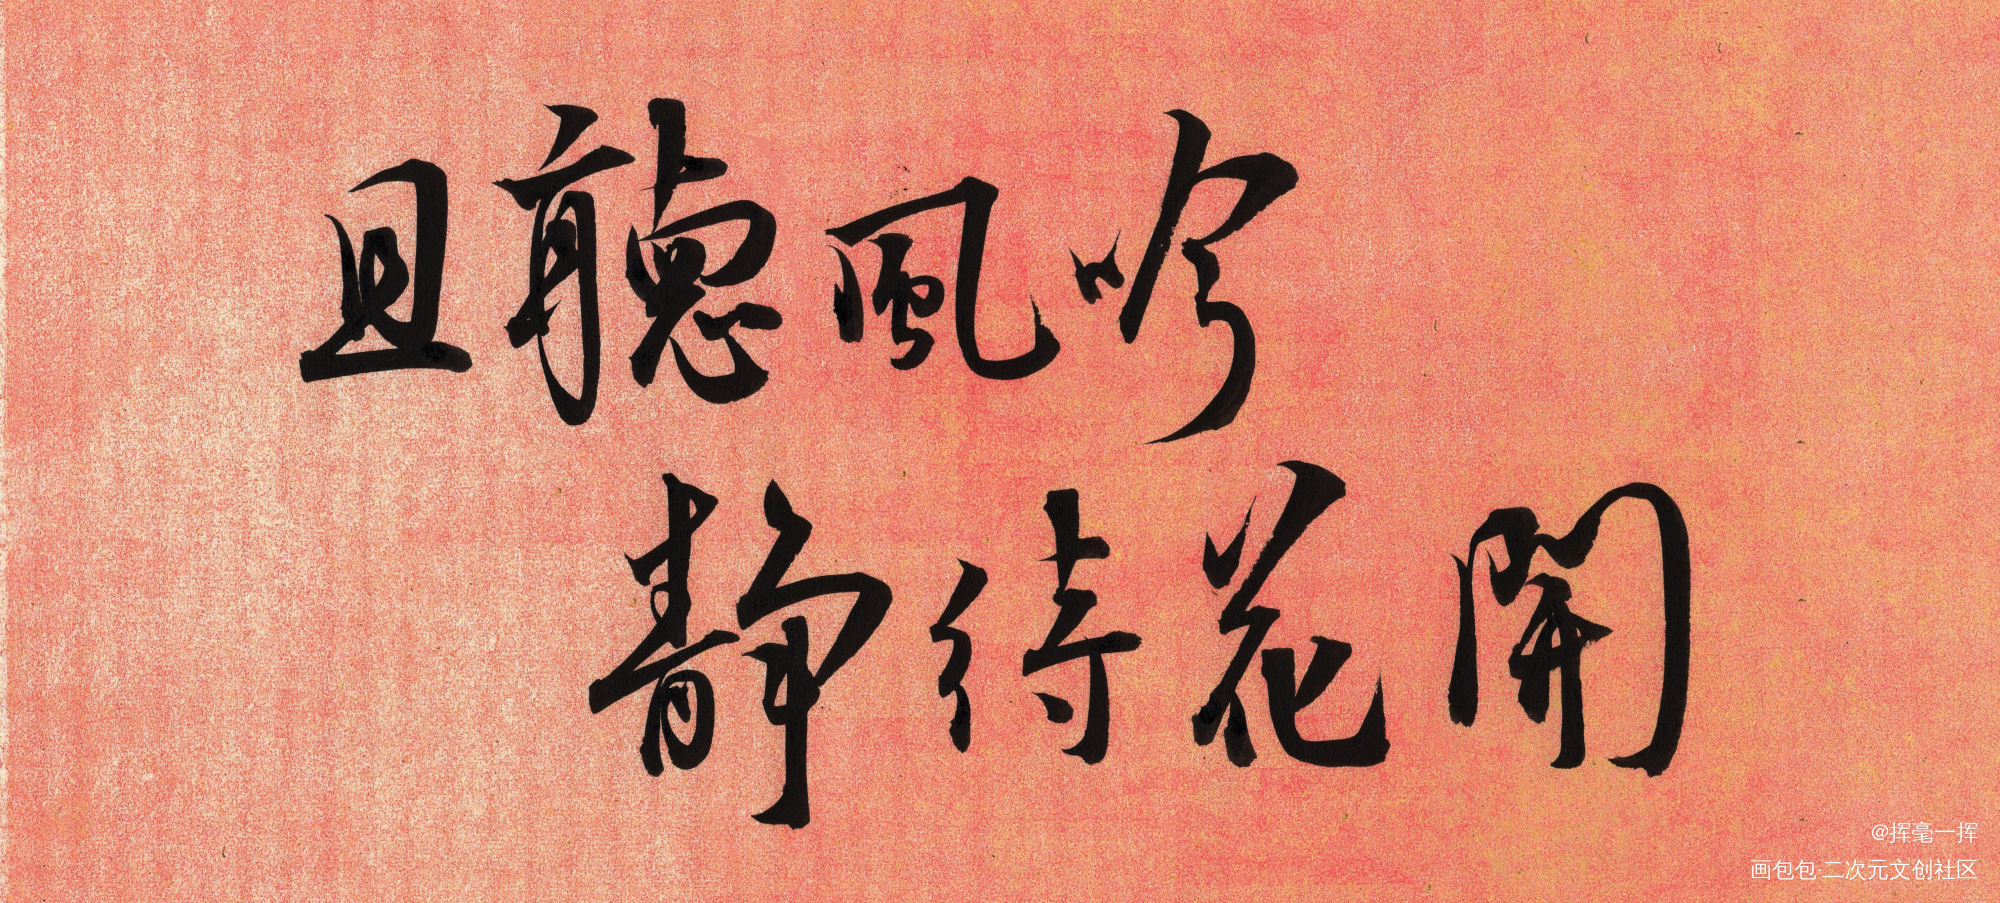 且聽風吟
静待花開
@挥毫一挥
画包包·二次元文创社区